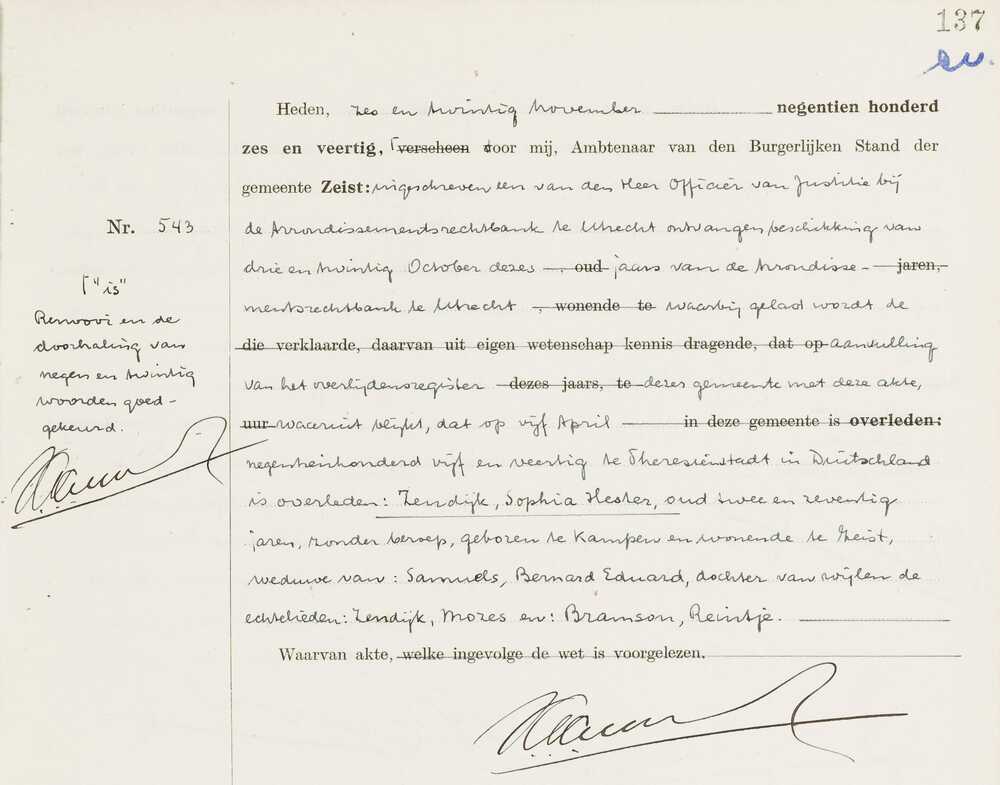 137
Heden, zes en twintig November negentien honderd
zes en veertig, ⌈verscheen door mij, Ambtenaar van den Burgerlijken Stand der
gemeente Zeist: ingeschreven een van den Heer Officier van Justitie bij
Nr. 543
de Arrondissementsrechtbank te Utrecht ontvangen beschikking van
drie en twintig October dezes , oud jaars van de Arrondisse- jaren,
mentsrechtbank te Utrecht , wonende te waarbij gelast wordt de
die verklaarde, daarvan uit eigen wetenschap kennis dragende, dat op aanvulling
van het overlijdensregister dezes jaars, te dezer gemeente met deze akte,
uur waaruit blijkt, dat op vijf April in deze gemeente is overleden:
negentienhonderd vijf en veertig te Theresienstadt in Duitschland
is overleden: Zendijk, Sophia Hester, oud twee en zeventig
jaren, zonder beroep, geboren te Kampen en wonende te Zeist,
weduwe van: Samuels, Bernard Eduard, dochter van wijlen de
echtelieden: Zendijk, Mozes en: Bramson, Reintje.
Waarvan akte, welke ingevolge de wet is voorgelezen.
⌈"is"
Renvooi en de
doorhaling van
negen en twintig
woorden goed-
gekeurd.